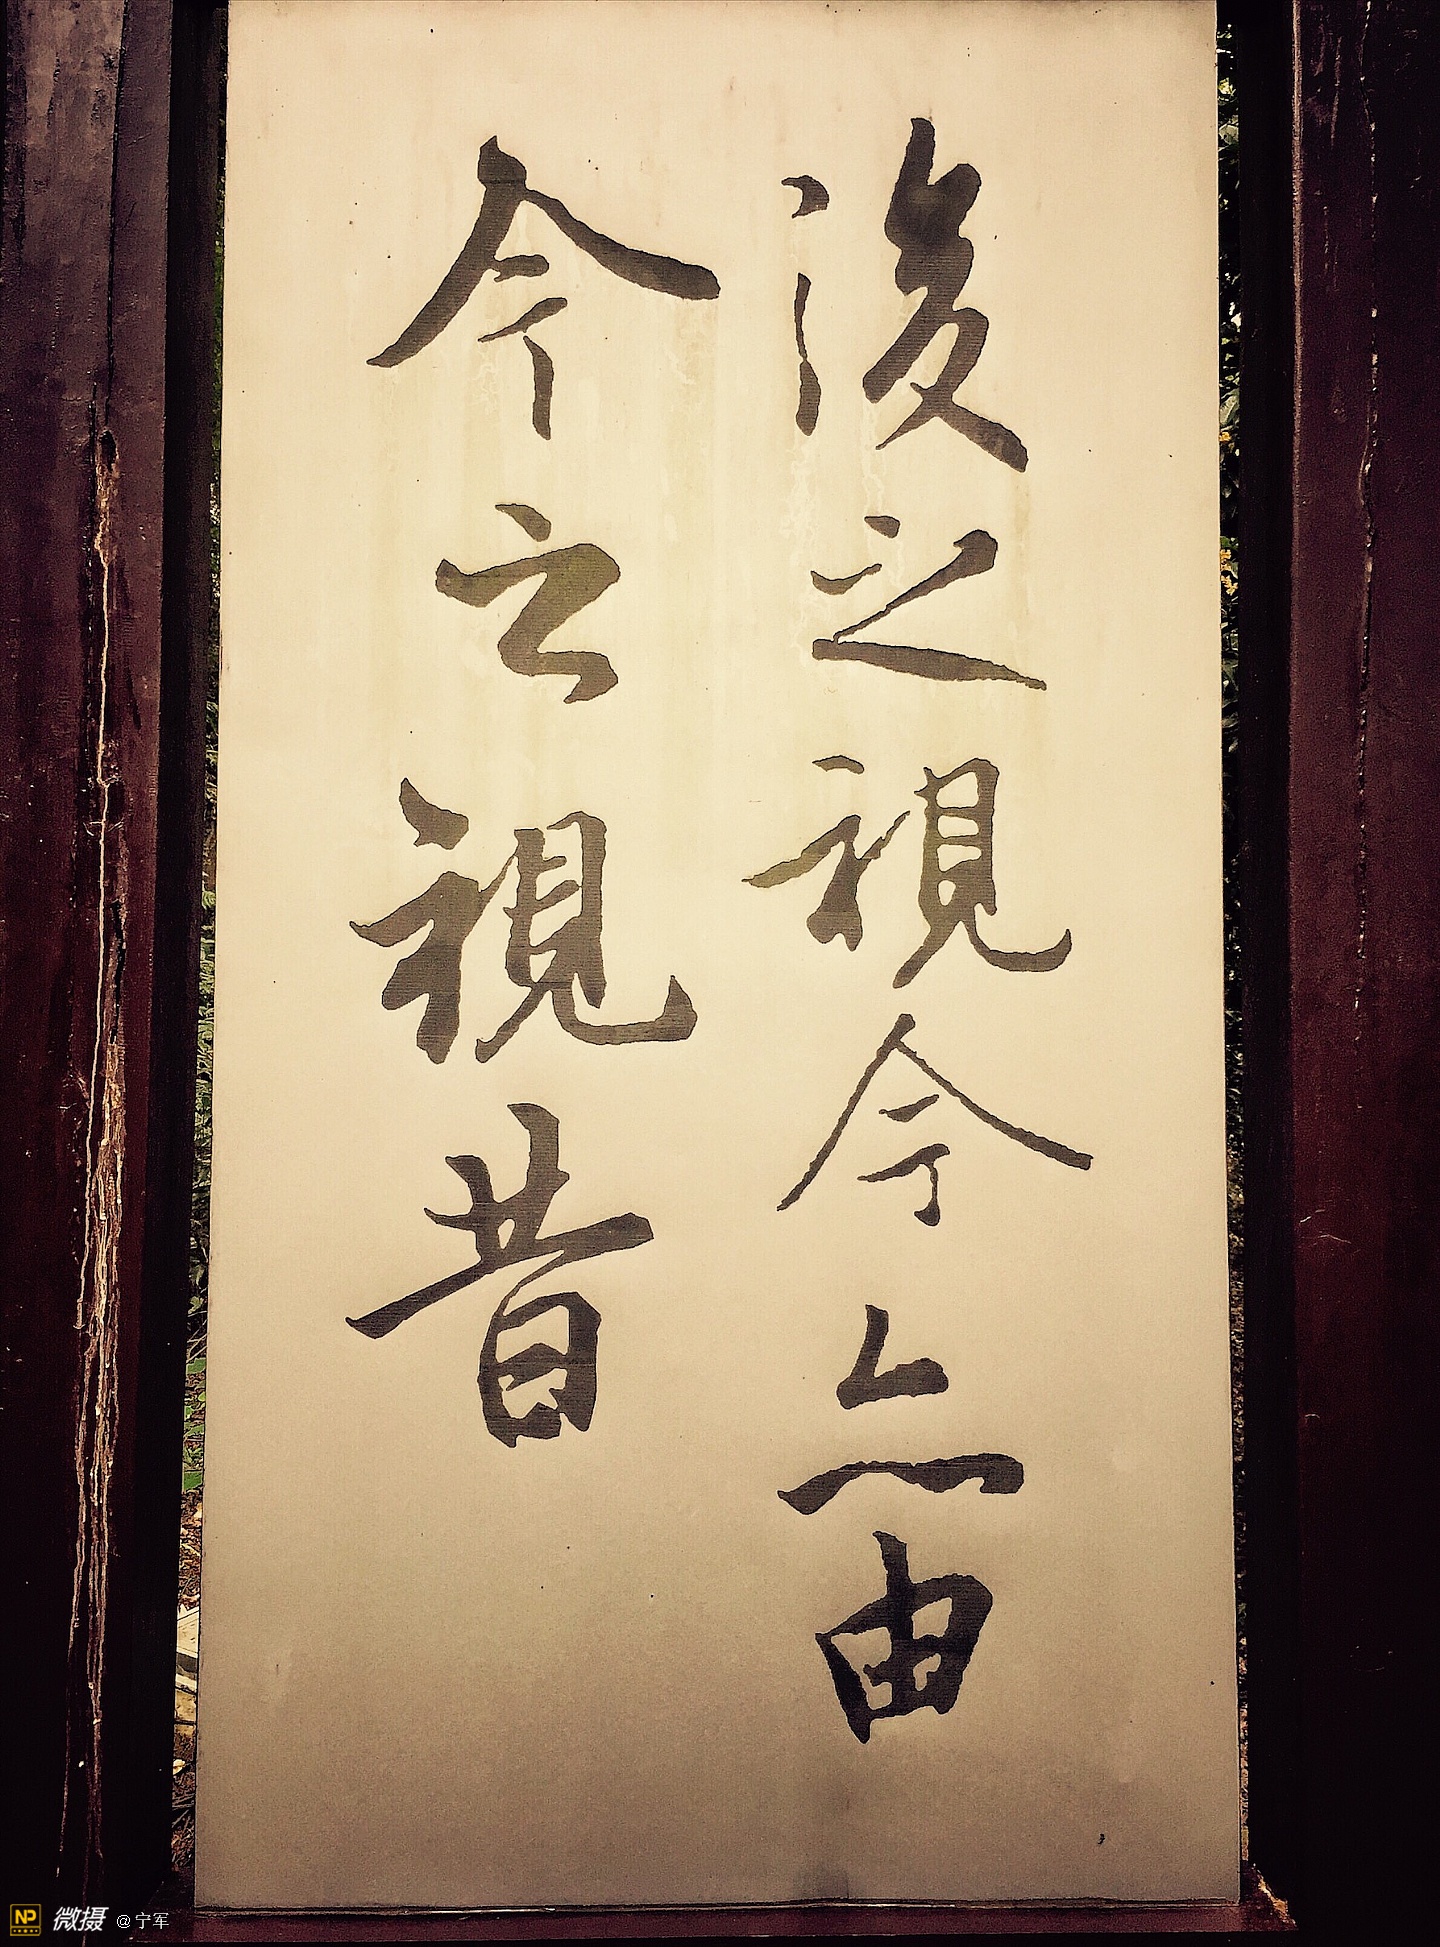 後之視今亦由
今之視昔
NP 微摄 @宁军